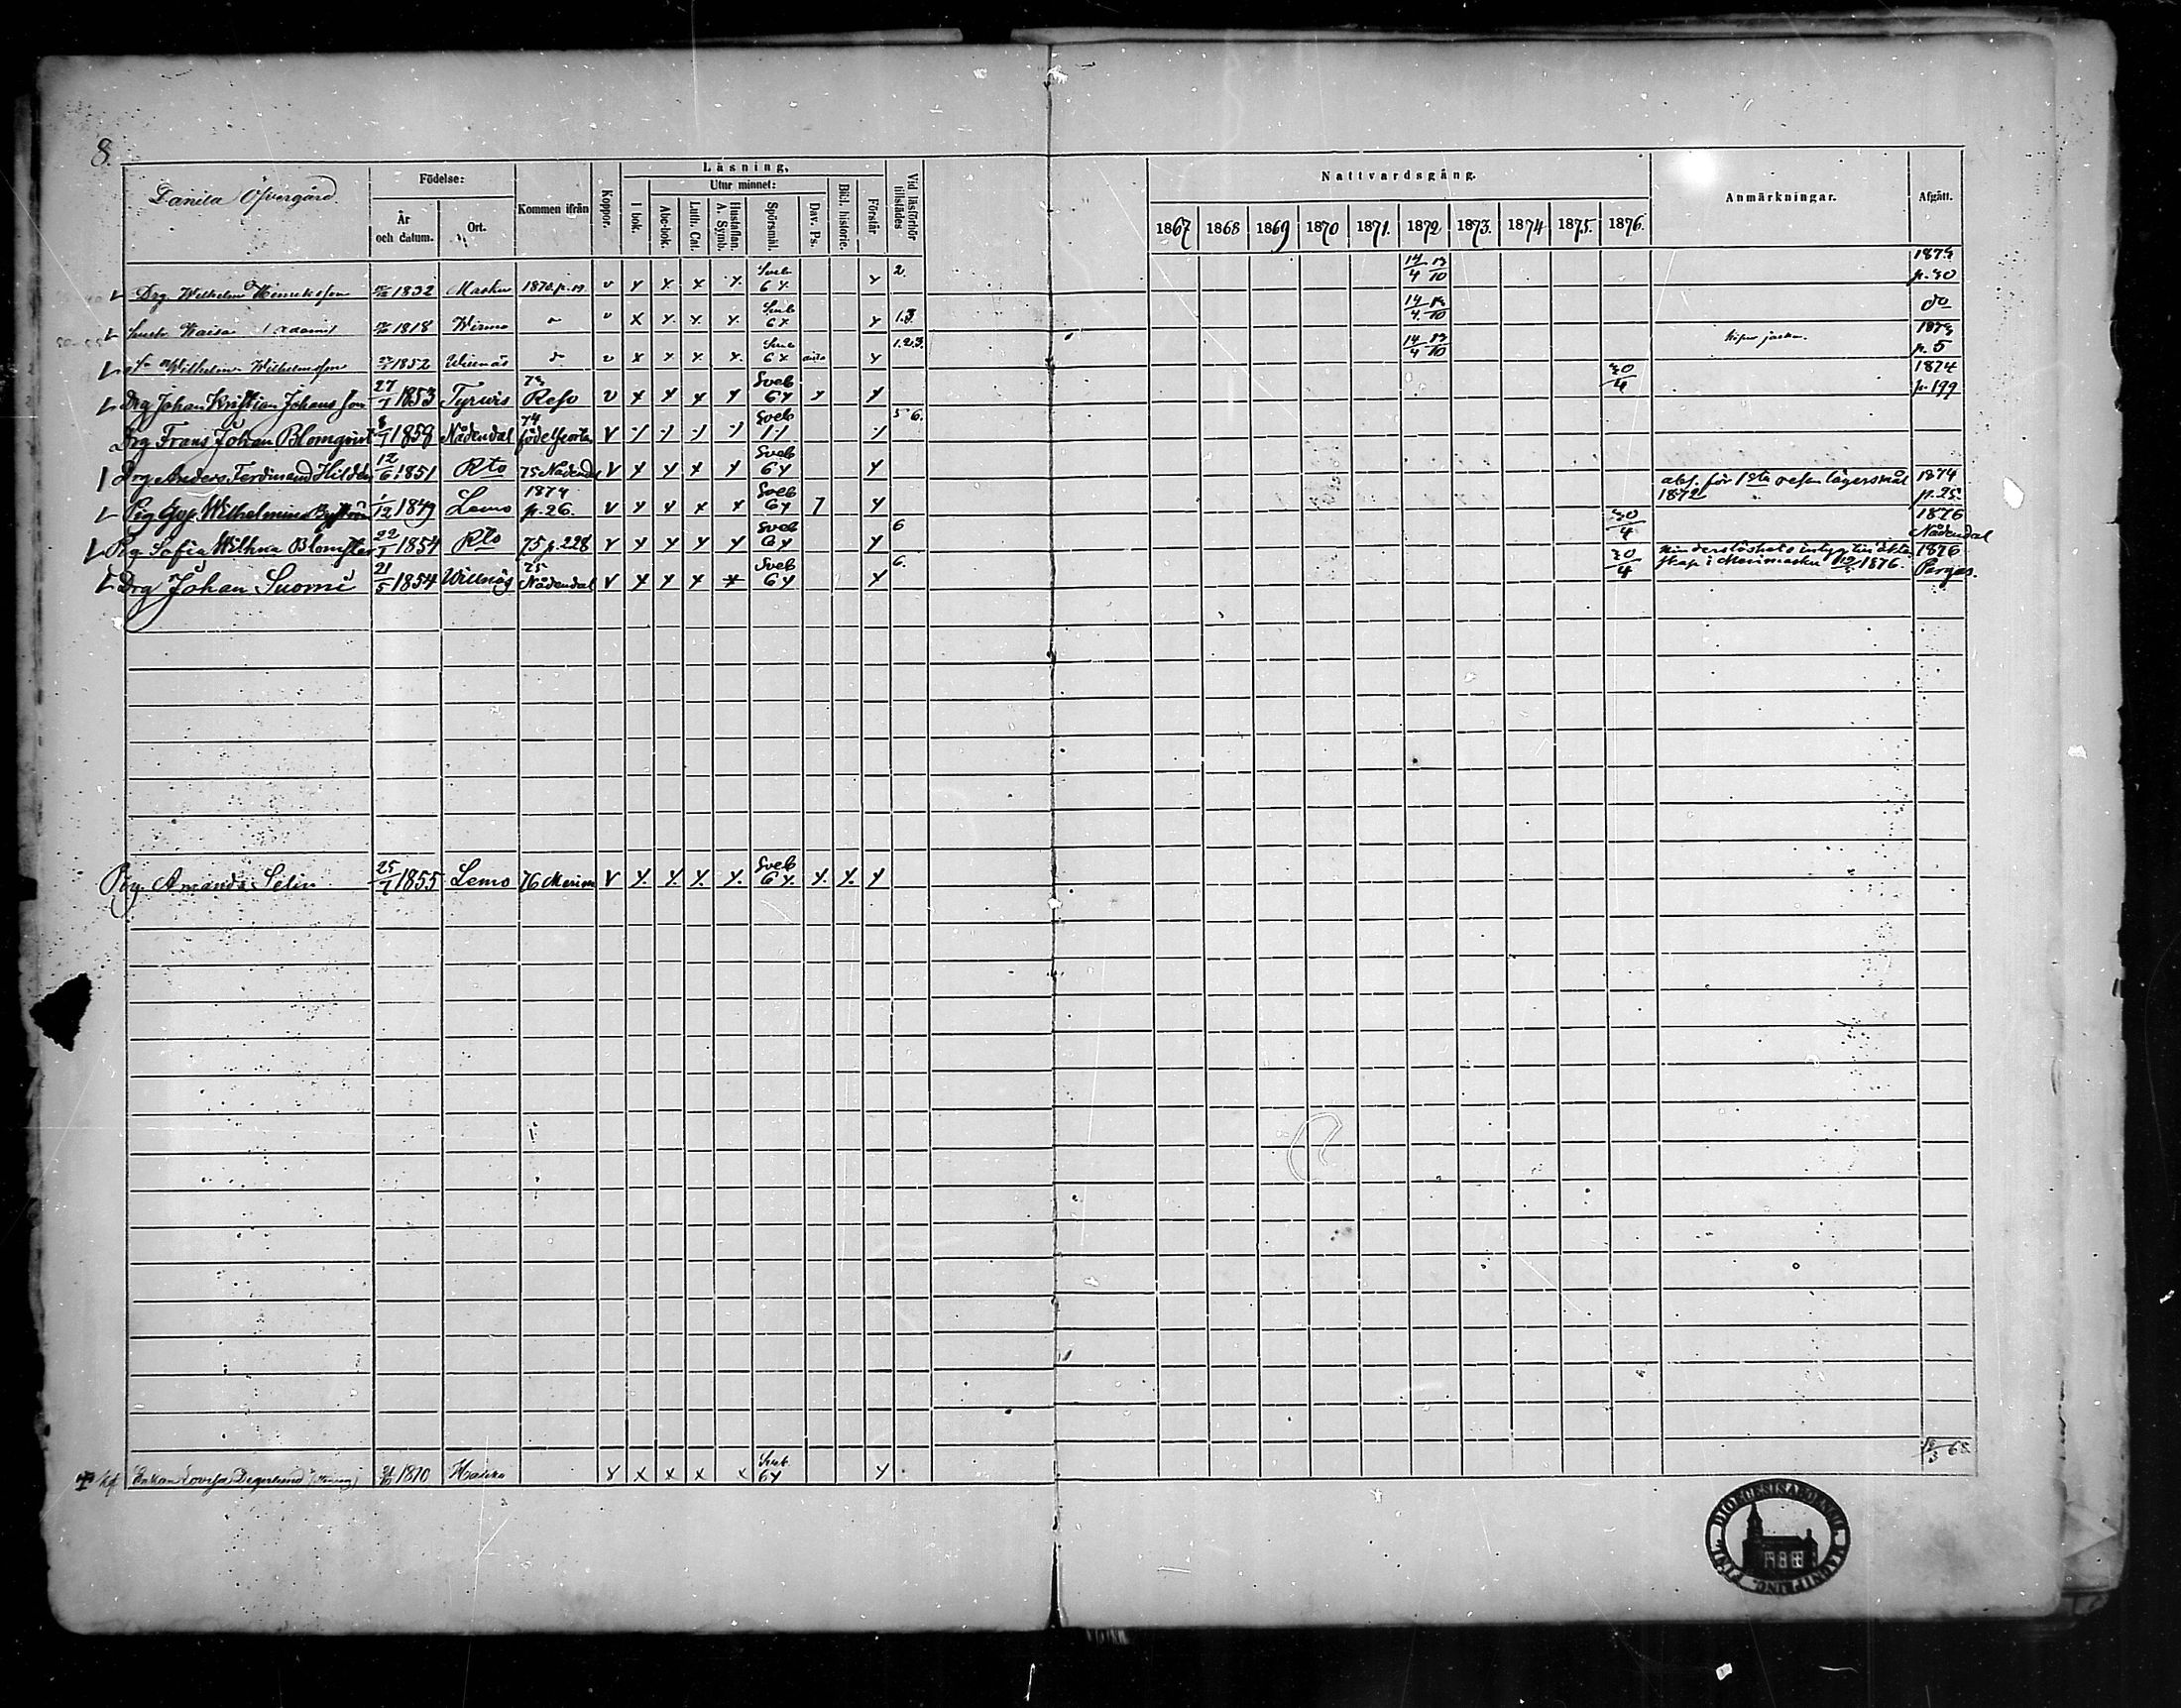 8.
Danila Öfvergård.
Födelse:
År och datum.
Ort.
Kommen ifrån
Koppor.
Läsning,
I bok.
Utur minnet:
Abc-bok.
Luth. Cat.
Hustaflan. A. Symb.
Spörsmål.
Dav. Ps.
Bibl. historie.
Förstår
Vid läsförhör tillstädes
Nattvardsgång.
1867 1868 1869 1870 1871. 1872 1873. 1874 1875. 1876.
Anmärkningar.
Afgått.
Drg. Wilhelm Henriksson 1832 Masku 1870. p. 19 v x x x x Sveb 6 x x 2. 14/4 13/10 1873 p. 30
Hustr Kaisa 1818 Wirmo v x x x x Sveb 6 x x 1.3. 14/4 13/10 do
Wilhelm Wilhelmsson 1852 Willnäs v x x x x Sveb 6 x x 1.2.3. 14/4 13/10 1873 p. 5
Drg Johan Kristian Johansson 27/1 1853 Tyrvis 73 Reso v x x x x Sveb 6 x x x 30/4 1874 p. 199
Drg Frans Johan Blomqvist 8/1 1859 Nådendal 74 födelseorten v Sveb 5 6.
Drg Anders Ferdinand Hildén 12/6 1851 Rto 75 Nådendal v x x x x Sveb 6 x x
Pig Gust. Wilhelmina 1/12 1849 Lemo 1874 p. 26. v x x x x Sveb 6 x 7 x abs. för 1sta resan lägersmål 1872 1874 p. 25
Pig Sofia Wilhna Blomster 22/1 1854 Rto 75 p. 228 v x x x x Sveb 6 x x 6 30/4 1876 Nådendal
Drg Johan Suomi 21/5 1854 Willnäs 75 Nådendal v x x x x Sveb 6 x x 6. 30/4 hinderslöshets intyg till äktenskap i Merimasku 1876. 1876 Pargas.
Pig. Amanda Selin 25/1 1855 Lemo 76 Merim v x. x. x. x. Sveb 6 x. x. x. x
Enkan Lovisa Degerlund 1810 x x x x Sveb 6 x x 68
DIOECESIS ABOENSIS MAGNI PRINC. FINL.